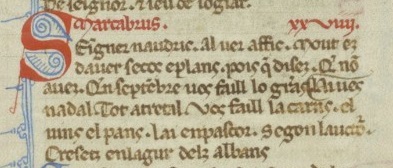 De seignor. a lei de ioglar.
Marcabrus. xxviiii.
SEigner naudric. Al uer affic. mout ez
dauer secos eplans. pois q̄ disez. Qͥ nō
auez. Qn septēbre uos faill lo gras. Al uos
nadal. Tot atretil. Vos faill la carns. el
uins el pans. lai enpascor. Segon lauctor.
Cresetz enlagur delz albans